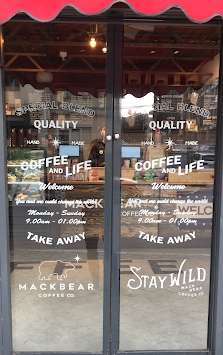 SPECIAL BLEND
QUALITY
HAND MADE
COFFEE AND LIFE
Welcome
You and me could change the world
Monday - Sunday
9.00am - 01.00pm
TAKE AWAY
MACKBEAR
COFFEE CO.
SPECIAL BLEND
QUALITY
HAND MADE
COFFEE AND LIFE
Welcome
You and me could change the world
Monday - Sunday
9.00am - 01.00pm
TAKE AWAY
STAY WILD
MACK
BEAR
COFFEE CO.